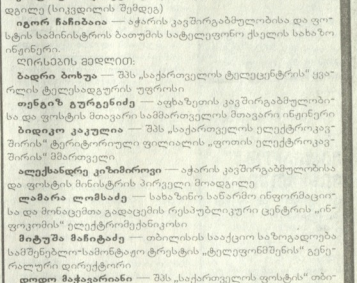 დგილე (სიკვდილის შემდეგ)
იგორ ჩანიბაია — აჭარის კავშირგაბმულობისა და ფო-
სტის სამინისტროს ბათუმის სატელეფონო ქსელის სახაზო
ინჟინერი.
ᲦᲘᲠᲡᲔᲑᲘᲡ ᲛᲔᲓᲚᲘᲗ:
ბადრი ბოხუა — შპს „საქართველოს ტელეცენტრის" ყვა-
რლის ტელესადგურის უფროსი
თენგიზ გურგენიძე — აფხაზეთის კავშირგაბმულობი-
სა და ფოსტის მთავარი სამმართველოს მთავარი ინჟინერი
ბიდიკო კაკულია — შპს „საქართველოს ელექტროკავ-
შირის" ტერიტორიული ფილიალის „ფოთის ელექტროკავ-
შირის" მმართველი
ალექსანდრე კიზიმიროვი — აჭარის კავშირგაბმულობისა
და ფოსტის მინისტრის პირველი მოადგილე
ლამარა ლომსაძე — სახაზინო საწარმო ინფორმაციი-
სა და მონაცემთა გადაცემის რესპუბლიკური ცენტრის „ინ-
ფოკომის" ელექტრომექანიკოსი
მიტუშა მაჩიტაძე — თბილისის სააქციო საზოგადოება
სამშენებლო-სამონტაჟო ტრესტის „ტელეფონმშენის" გენე-
რალური დირექტორი
დოდო მაჭავარიანი — შპს „საქართველოს ფოსტის" თბი-